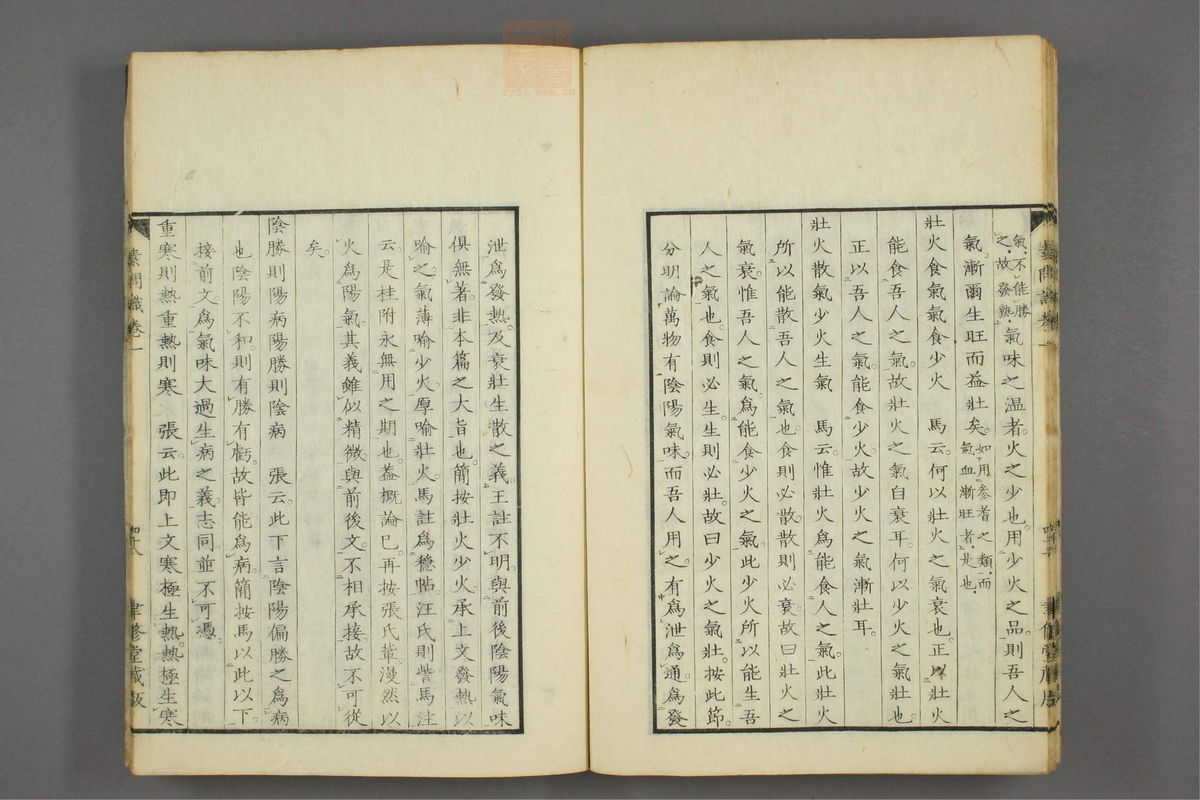 氣、不能勝之、故發熱、氣味之温者。火之少也。用少火之品。則吾人之
氣。漸爾生旺而益壯矣。如用参耆之類、而氣血漸旺者、是也、
壯火食氣氣食少火　馬云。何以壯火之氣衰也。正以壯火
能食吾人之氣。故壯火之氣自衰耳。何以少火之氣壯也。
正以吾人之氣。能食少火。故少火之氣漸壯耳。
壯火散氣少火生氣　馬云。惟壯火爲能食人之氣。此壯火
所以能散吾人之氣也。食則必散。散則必衰。故曰壯火之
氣衰。惟吾人之氣。爲能食少火之氣。此少火所以能生吾
人之氣也。食則必生。生則必壯。故曰少火之氣壯。按此節。
分明論萬物有陰陽氣味。而吾人用之。有爲泄爲通。爲發
泄爲發熱。及衰壯生散之義。王註不明。與前後陰陽氣味
俱無著。非本篇之大旨也。簡按壯火少火。承上文發熱。以
喻之。氣薄喻少火。厚喻壯火。馬註爲穩帖。汪氏則訾馬注
云。是桂附永無用之期也。葢概論已。再按張氏輩漫然以
火爲陽氣。其義雖似精微。與前後文。不相承接。故不可從
矣。
陰勝則陽病陽勝則陰病　張云。此下言陰陽偏勝之爲病
也。陰陽不和。則有勝有虧。故皆能爲病。簡按馬以此以下。
接前文。爲氣味大過生病之義。志同。並不可憑。
重寒則熱重熱則寒　張云。此即上文寒極生熱。熱極生寒
素問識卷一
聿修堂藏版